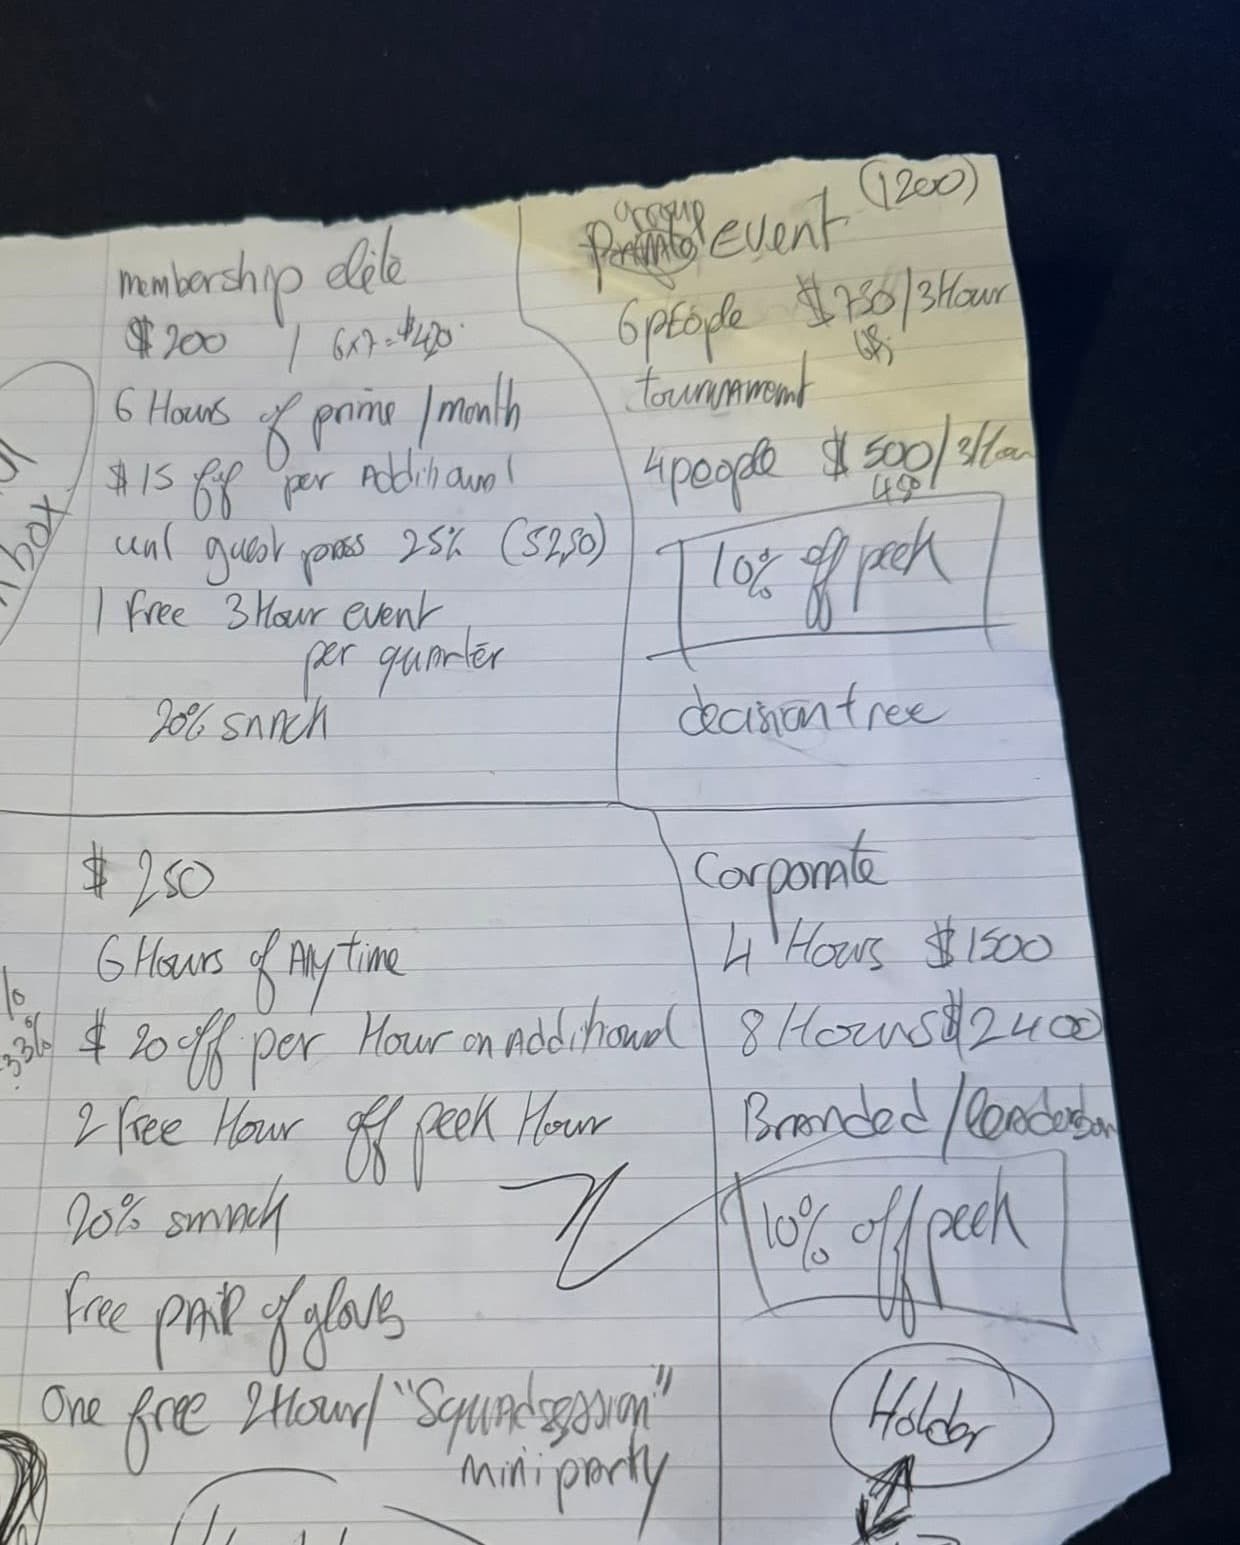 membership elite
$200 / 6x7=$420
6 Hours of prime /month
$15 off per Additional
unl guest pass 25% (52,50)
1 free 3Hour event
per quarter
20% snack
group event (1200)
6 people $750/3Hour
tournament
4people $500/3Hou
450
10% off peek
decision tree
box
$250
6 Hours of Anytime
$20 off per Hour on Additional
2 free Hour off peek Hour
20% snnack
free pair of gloves
One free 2Hour/ "Squad session"
mini party
33%
Corporate
4 Hours $1500
8 Hours $2400
Branded/
10% off peek
Holder